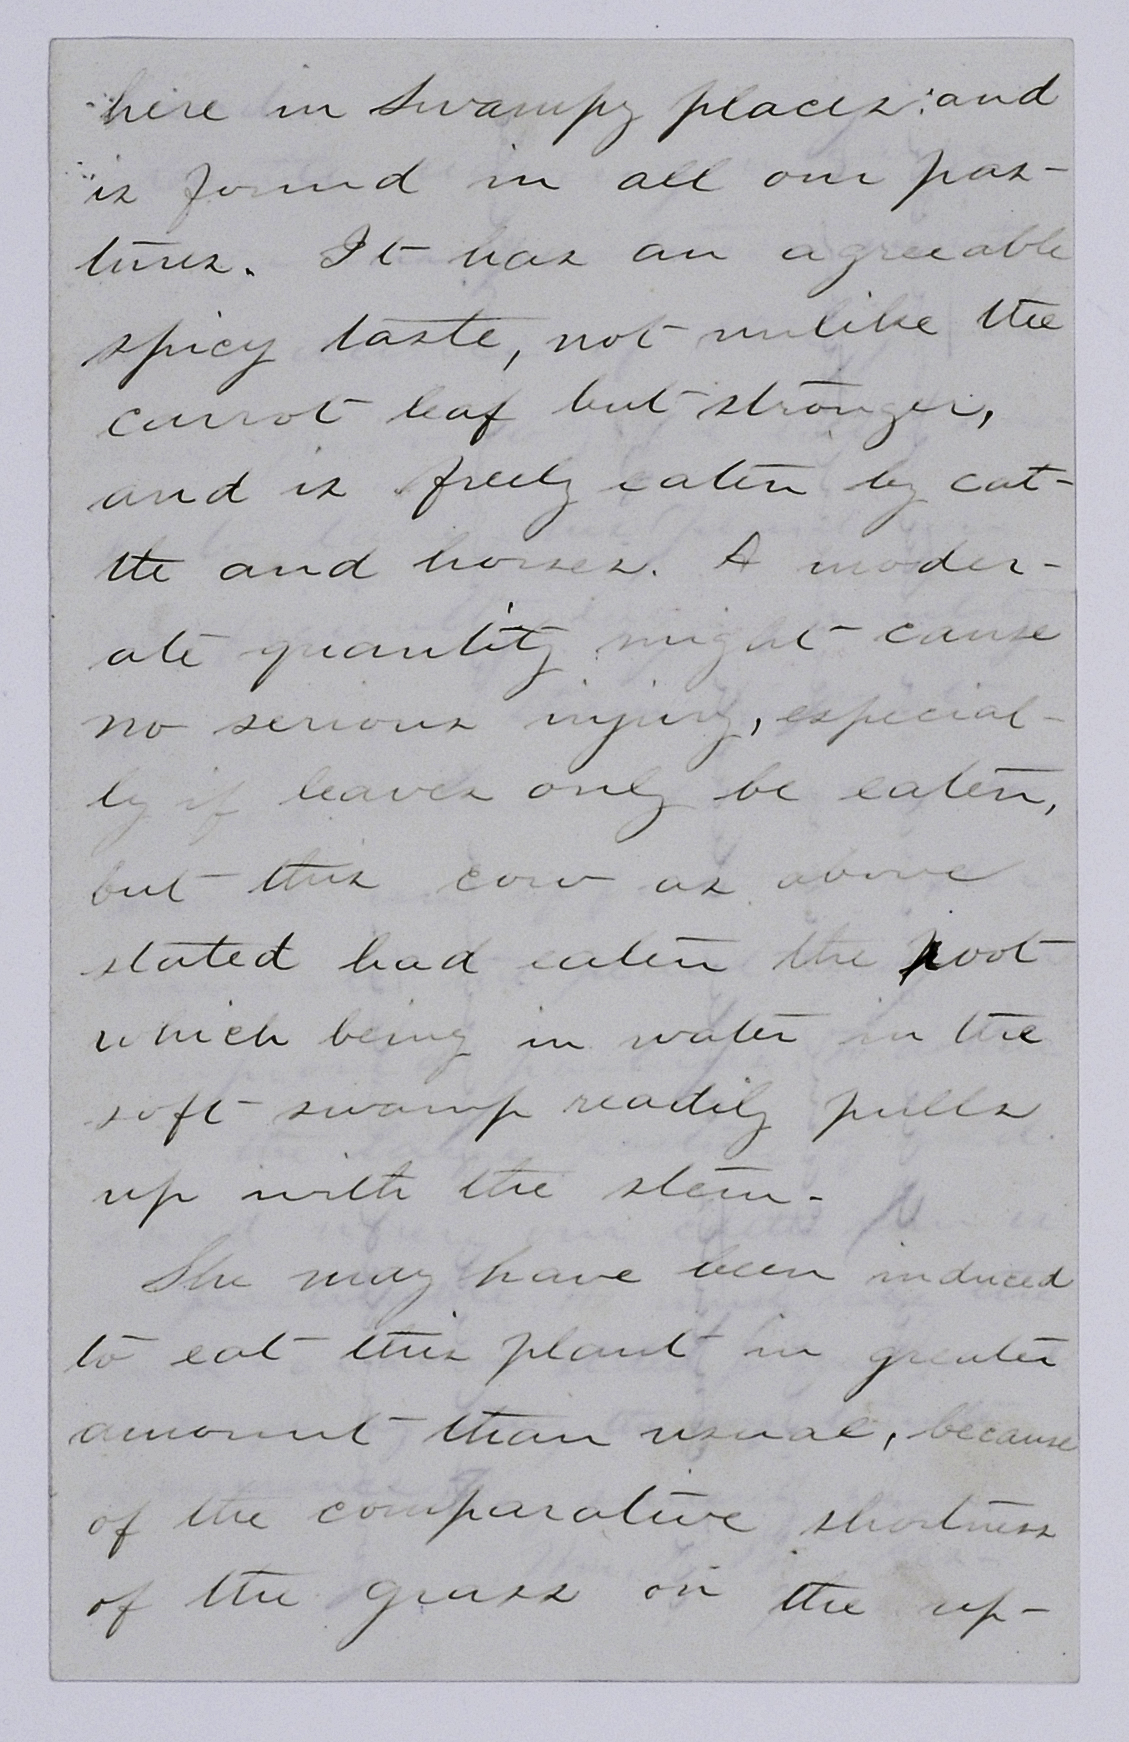 here in swampy places: and
is found in all our pas-
tures. It has an agreeable
spicy taste, not unlike the
carrot leaf but stronger,
and is freely eaten by cat-
tle and horses. A moder-
ate quantity might cause
no serious injury, especial-
ly if leaves only be eaten,
but this cow as above
stated had eaten the root
which being in water in the
soft swamp readily pulls
up with the stem.
She may have been induced
to eat this plant in greater
amount than usual, because
of the comparative shortness
of the grass on the up-